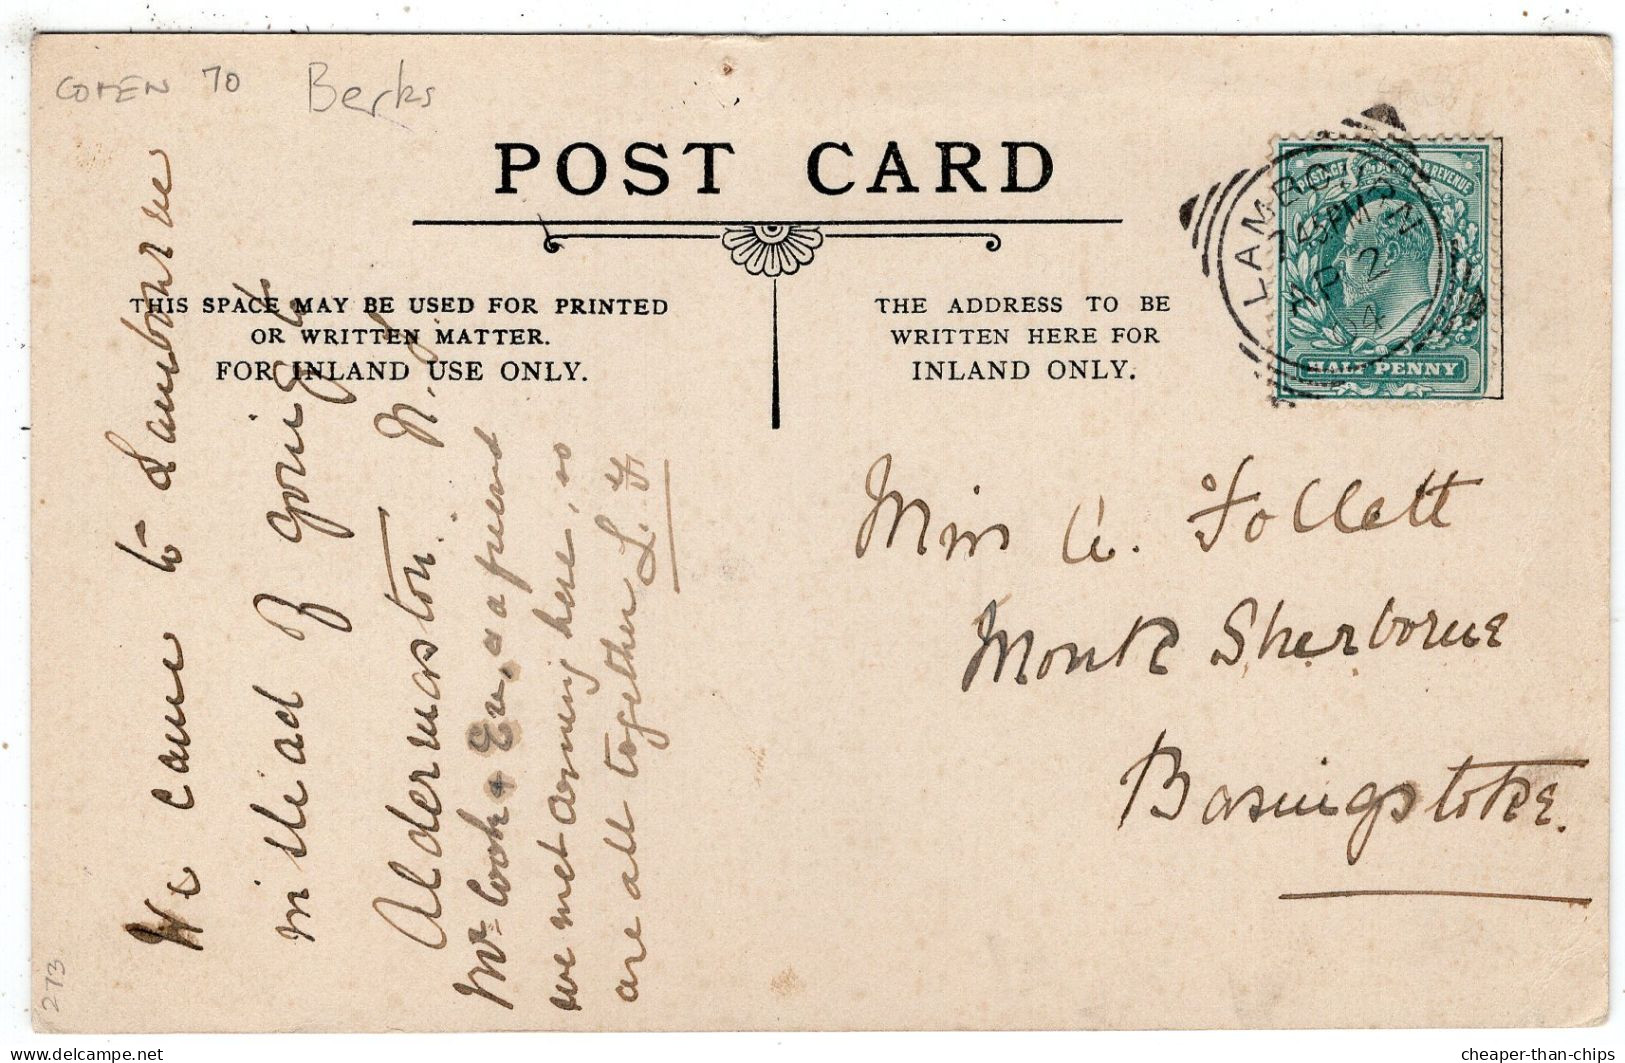 Berks
POST CARD
THIS SPACE MAY BE USED FOR PRINTED
OR WRITTEN MATTER.
FOR INLAND USE ONLY.
THE ADDRESS TO BE
WRITTEN HERE FOR
INLAND ONLY.
LAMBOURN
7 45PM
AP 2
04
POSTAGE REVENUE
HALF PENNY
We came to Lambourne
instead of going to
Aldermaston.
Mr Cook & Eu, a friend
we met coming here, so
are all together L. F
Miss A. Follett
Monk Sherborne
Basingstoke.
273
cheaper-than-chips
www.delcampe.net